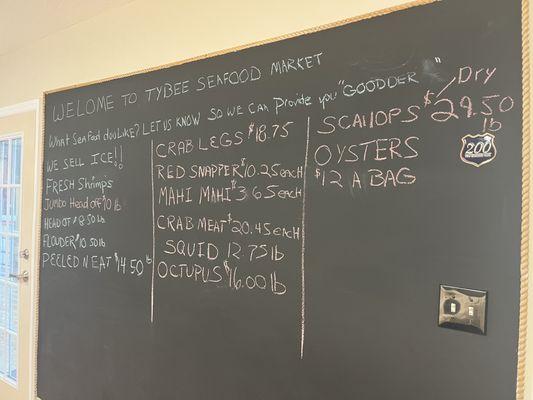 WELCOME TO TYBEE SEAFOOD MARKET
What Seafood doULike? LET US KNOW SO WE CAN Provide you "GOODDER"
WE SELL ICE!!
FRESH Shrimps
Jumbo Head off $10 lb
HEAD OFF $8.50 lb
FLOUDER $10.50 lb
PEELED N EAT $14.50 lb
CRAB LEGS $18.75
RED SNAPPER $10.25 each
MAHI MAHI $3.65 each
CRAB MEAT $20.45 each
SQUID 12.75 lb
OCTUPUS $16.00 lb
Dry
SCALLOPS $29.50 lb
OYSTERS
$12 A BAG
200